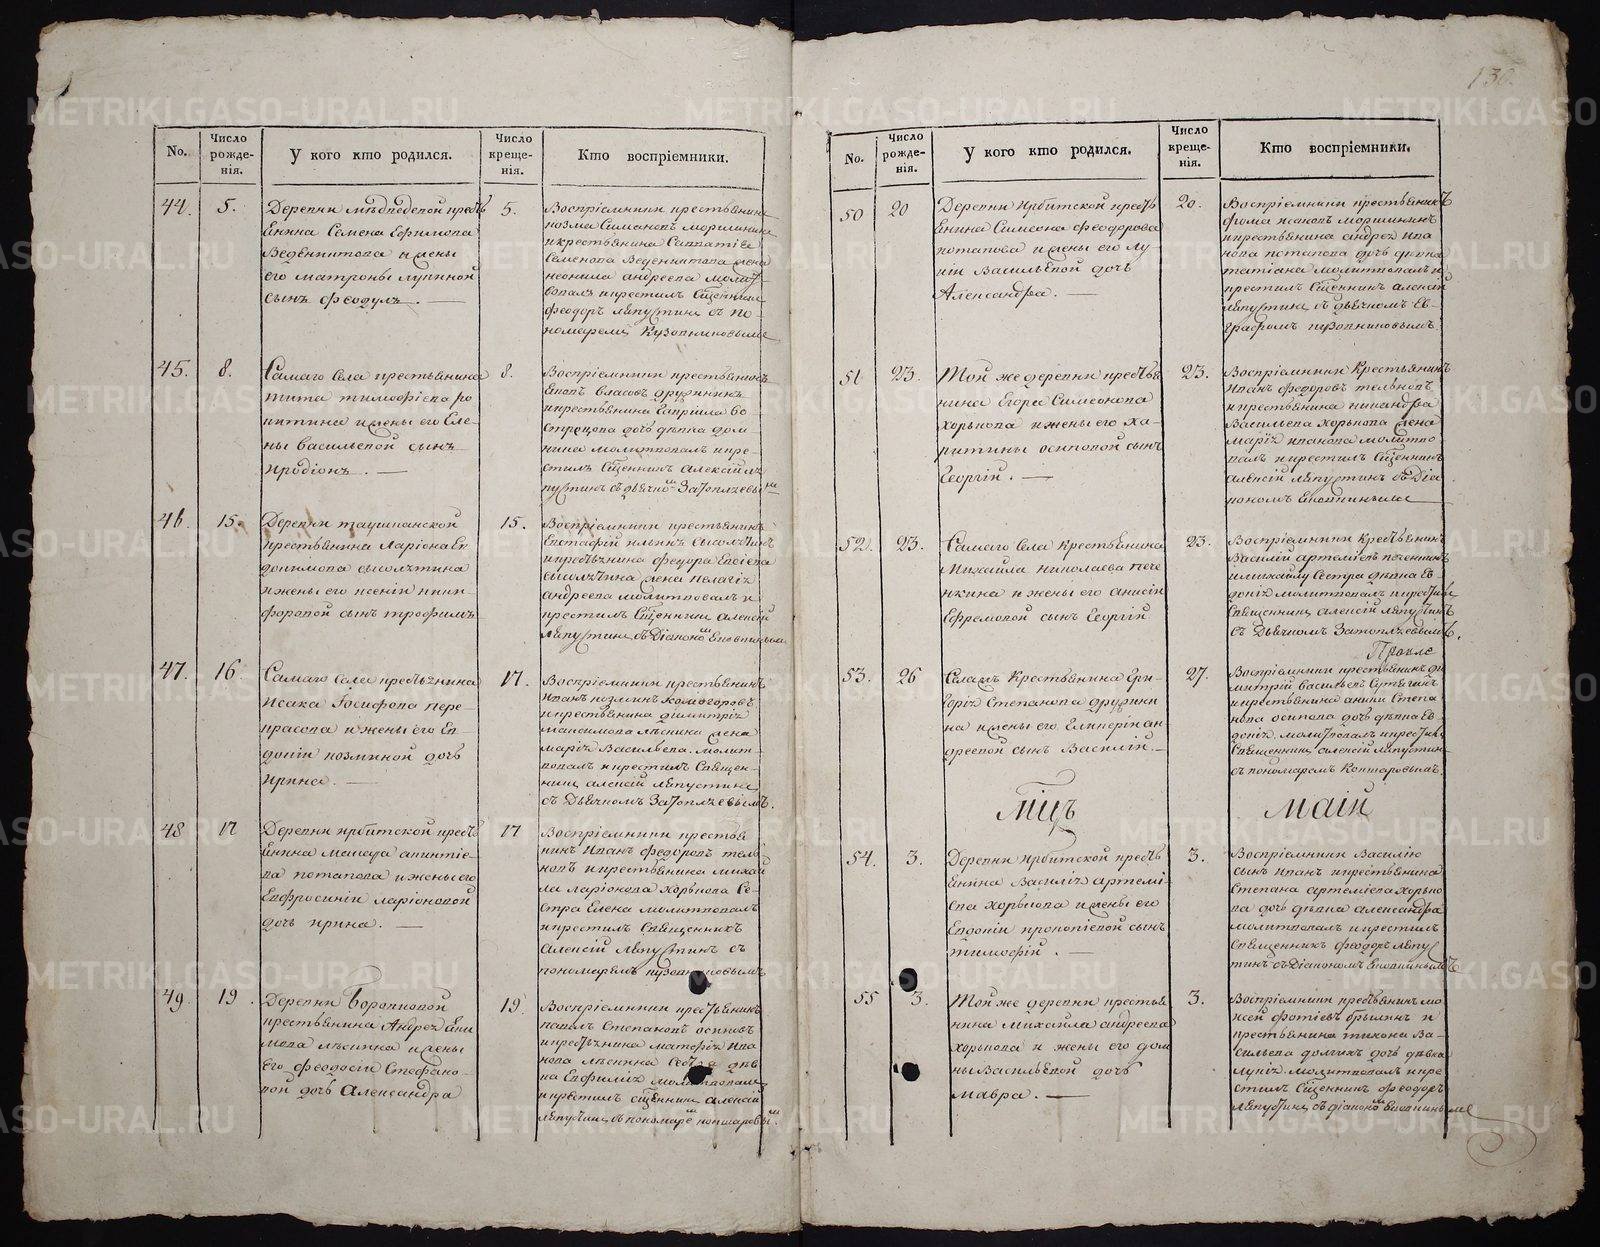 130.
No.
Число рожденія.
У кого кто родился.
Число крещенія.
Кто воспріемники.
44.
5.
Деревни Медведевой кресть
янина Семена Ефимова
Ведениктова и жены
его Матроны Лупиной
сынъ Феодулъ.
5.
Воспріемники крестьянинъ
и крестьянина Савватіѧ
Семенова Веденитова жена
Неонила Андреева молит
вовалъ и крестилъ Сщенникъ
Феодоръ Ляпустинъ съ по
номаремъ Кузовниковымъ
45.
8.
Самаго села крестьянина
Тита Тимофѣева
и жены его Еле
ны Васильевой сынъ
Иродіонъ.
8.
Воспріемники крестьянинъ
Власовъ Дружининъ
и крестьянина Гавріила Во
строцова дочь дѣвка Дом
нина молитвовалъ и кре
стилъ Сщенникъ Алексій Ля
пустинъ съ дьячко Затопляевы
46.
15.
Деревни Таушканской
крестьянина Ларіона Ев
докимова
и жены его Ксеніи Ники
форовой сынъ Трофимъ
15.
Воспріемники крестьянинъ
Евстафій Ильинъ
и крестьянина Федора
жена Пелагія
Андреева молитвовалъ и
крестилъ Сщенникъ Алексій
Ляпустинъ съ Діакономъ
47.
16
Самаго села крестьянина
Исака Іосифова Пере
красова и жены его Ев
докіи Козминой дочь
Ирина.
17.
Воспріемники крестьянинъ
Иванъ Козминъ Коногоровъ
и крестьянина Димитрія
Максимова Лѣсника жена
Марія Васильева. Молит
вовалъ и крестилъ Священ
никъ Алексій Ляпустинъ
съ Дьячкомъ Затопляевымъ.
48
17
Деревни Ирбитской кресть
янина
ва Потапова и жены его
Евфросиніи Ларіоновой
дочь Ирина.
17
Воспріемники крестья
нинъ Иванъ Федоровъ Тель
новъ и крестьянина Михаи
ла Ларіонова Хорькова се
стра Елена молитвовалъ
и крестилъ Священникъ
Алексій Ляпустинъ съ
пономаремъ Кузовниковымъ
49.
19.
Деревни Боровковой
крестьянина Андрея
мова Лѣсника и жены
его Феодосіи Стефано
вой дочь Александра
19.
Воспріемники крестьянинъ
Павелъ Степановъ Осиповъ
и крестьянина Матфія Ива
нова Лѣсника сестра дѣв
ка Евфимія молитвовалъ
и крестилъ Сщенникъ Алексій
Ляпустинъ съ пономаре
No.
Число рожденія.
У кого кто родился.
Число крещенія.
Кто воспріемники.
50
20
Деревни Ирбитской кресть
янина Симеона Феодорова
Потапова и жены его Лу
кіи Васильевой дочь
Александра.
20.
Воспріемники крестьянинъ
Фома Исаковъ
и крестьянина Андрея Ива
нова Потапова дочь дѣвка
Татіана молитвовалъ и
крестилъ Сщенникъ Алексій
Ляпустинъ съ дьячкомъ Ев
графомъ Кузовниковымъ
51
23.
Той же деревни крестья
нина Егора Симеонова
Хорькова и жены его Ха
ритины Осиповой сынъ
Георгій.
23.
Воспріемники Крестьянинъ
Иванъ Федоровъ Тельновъ
и крестьянина Никандра
Васильева Хорькова жена
Марія Иванова молитво
валъ и крестилъ Сщенникъ
Алексій Ляпустинъ съ Діа
кономъ
52.
23.
Самаго села Крестьянина
Михаила Николаева Пече
нкина и жены его Анисіи
Ефремовой сынъ Георгій
23.
Воспріемники Крестьянинъ
Василій Артеміевъ Печенкинъ
и Михаилу сестра дѣвка Ев
докія молитвовалъ и крестилъ
Священникъ Алексій Ляпустинъ
съ Дьячкомъ Затопляевымъ.
53.
26
Крестьянина Гри
горія Степанова Дружини
на и жены его Екатерины Ан
дреевой сынъ Василій.
27.
Воспріемники крестьянинъ Ди
митрій Васильевъ
и крестьянина Аники Степа
нова Осипова дочь дѣвка Ев
докія. молитвовалъ и крестилъ
Священникъ Алексій Ляпустинъ
съ пономаремъ
Мцъ
Маій
54.
3.
Деревни Ирбитской кресть
янина Василія Артемі
ева Хорькова и жены его
Евдокіи Прокопіевой сынъ
Тимофій.
3.
Воспріемники Василію
сынъ Иванъ и крестьянина
Степана Артеміева Хорько
ва дочь дѣвка Александра
молитвовалъ и крестилъ
Священникъ Феодоръ Ляпус
тинъ съ Діакономъ
55
3.
Той же деревни крестья
нина Михаила Андреева
Хорькова и жены его Дом
ны Васильевой дочь
Мавра.
3.
Воспріемники крестьянинъ Мо
исей Фотіевъ Брылинъ и
крестьянина Тихона Ва
сильева Долгихъ дочь дѣвка
Лукія. молитвовалъ и кре
стилъ Сщенникъ Феодоръ
Ляпустинъ съ діаконо